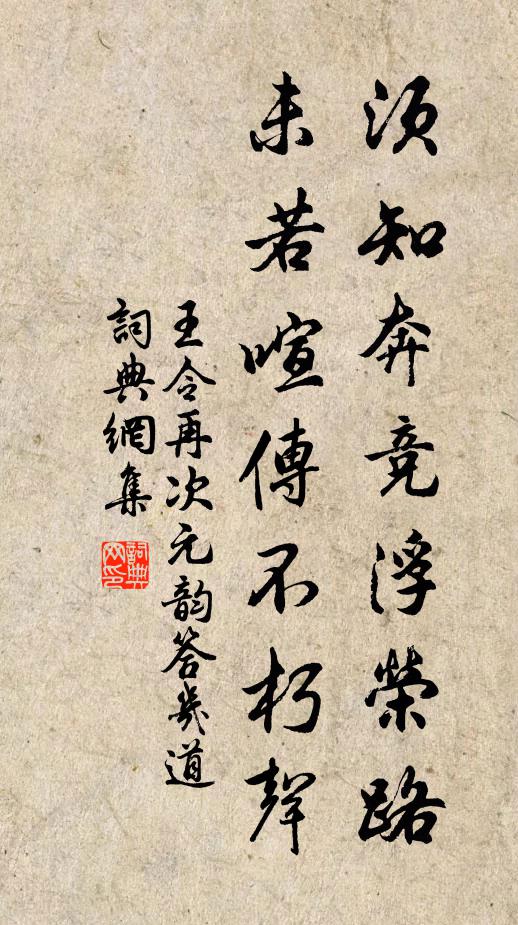 須知奔竞浮榮路
未若喧傳不朽聲
王令再次元韵答幾道
詞典網集
詞典网印